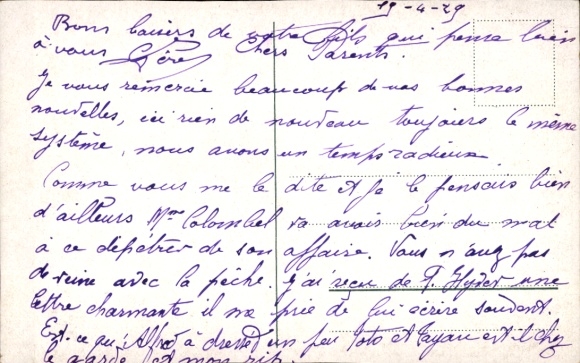 19-4-29
Bons baisers de votre fils qui pense bien
à vous Chers Parents.
Je vous remercie beaucoup de vos bonnes
nouvelles, ici rien de nouveau toujours le même
système, nous avons un temps radieux
Comme vous me le dite et je le pensais bien
d'ailleurs Mme Colombel va avoir bien du mal
à ce dépêtrer de son affaire. Vous n'avez pas
de veine avec la pêche. J'ai reçu de une
lettre charmante il me prie de lui écrire souvent.
Est-ce qu' Alfred à dressé un peu Toto et est il chez
le garde